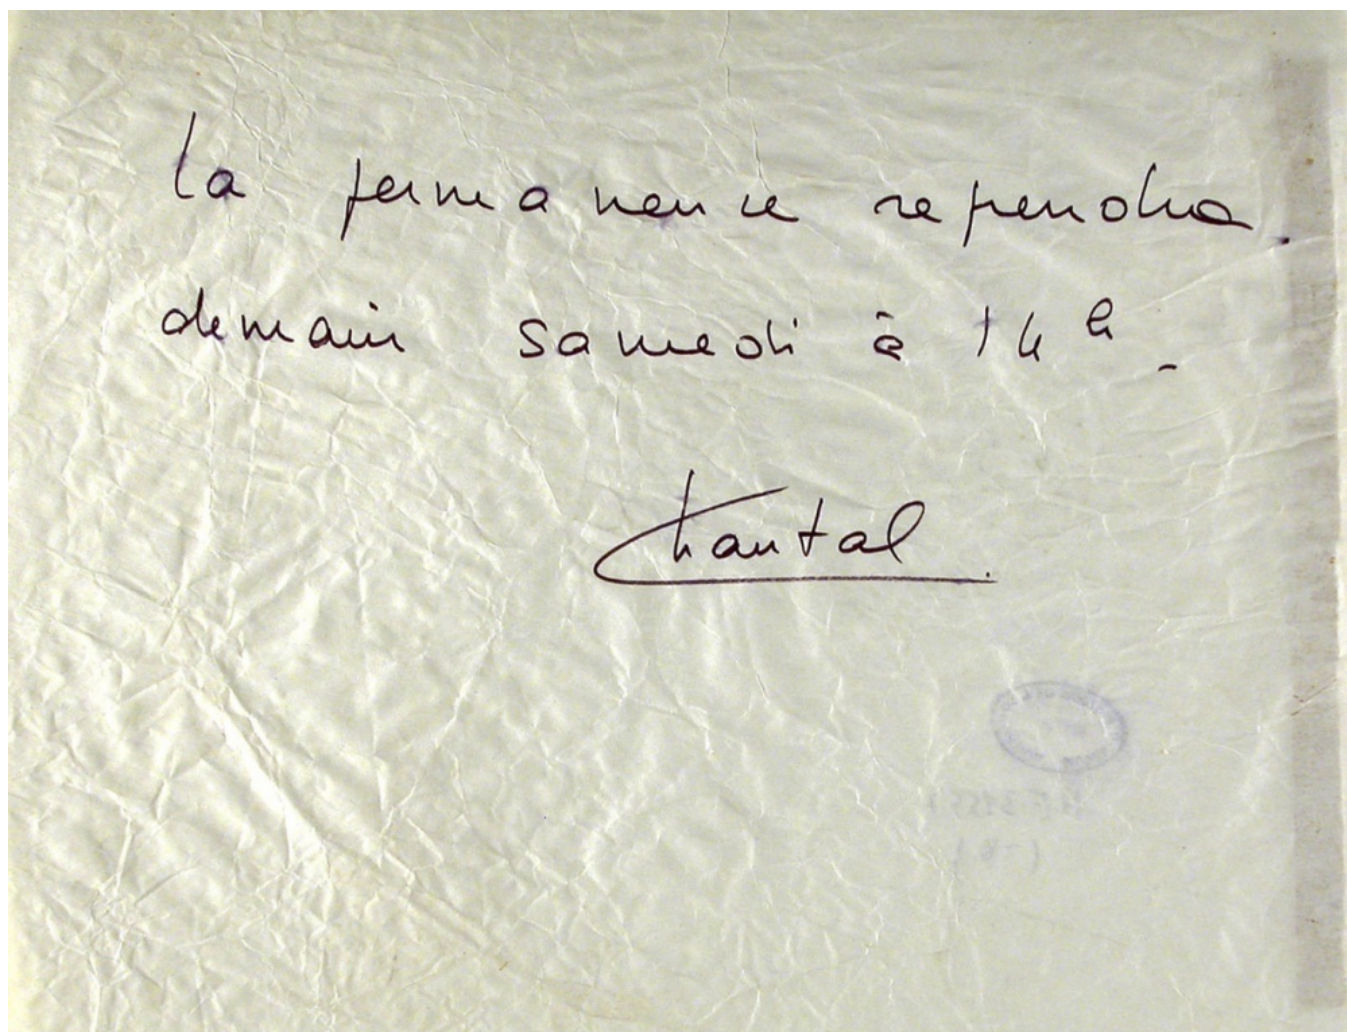 la permanence reprendra.
demain samedi à 14h.
Chantal.